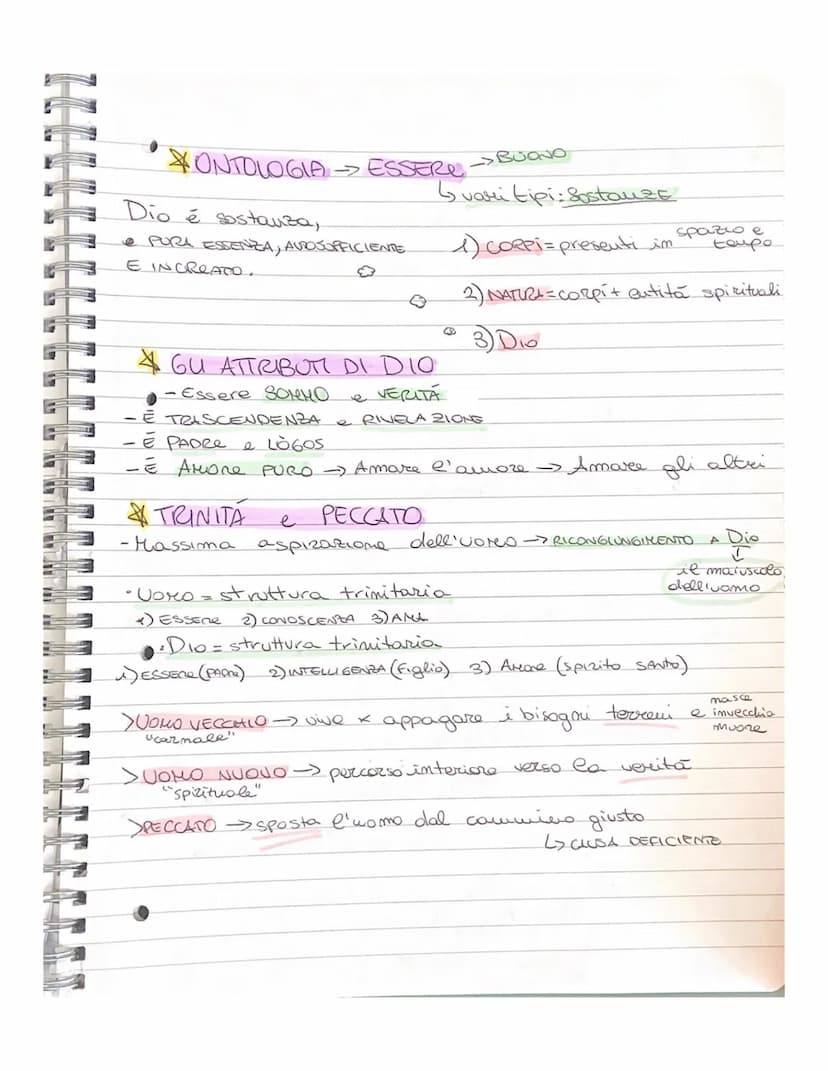 ONTOLOGIA → ESSERE → BUONO
↳ vari tipi: SOSTANZE
Dio é sostanza,
e PURA ESSENZA, AUTOSUFFICIENTE
E INCREATO.
1) CORPI = presenti in spazio e tempo
2) NATURA = corpi + entitá spirituali
3) Dio
GLI ATTRIBUTI DI DIO
- Essere SOMMO e VERITÁ
- É TRASCENDENZA e RIVELAZIONE
- É PADRE e LÒGOS
- É AMORE PURO → Amare l'amore → Amare gli altri
TRINITÁ e PECCATO
- Massima aspirazione dell'uomo → RICONGIUNGIMENTO A Dio
↓
il maiuscolo
dell'uomo
· UOMO = struttura trinitaria
1) ESSERE 2) CONOSCENZA 3) AMA
· Dio = struttura trinitaria
1) ESSERE (PADRE) 2) INTELLIGENZA (Figlio) 3) Amore (SPIRITO SANTO)
> UOMO VECCHIO → vive x appagare i bisogni terreni e nasce invecchia muore
"carnale"
> UOMO NUOVO → percorso interiore verso la veritá
"spirituale"
> PECCATO → sposta l'uomo dal cammino giusto
↳ CAUSA DEFICIENTE